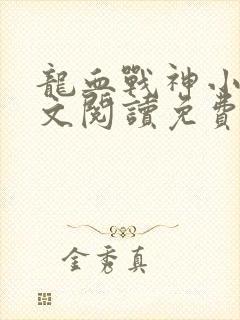 龍血戰神小
文閱讀免費
金秀真